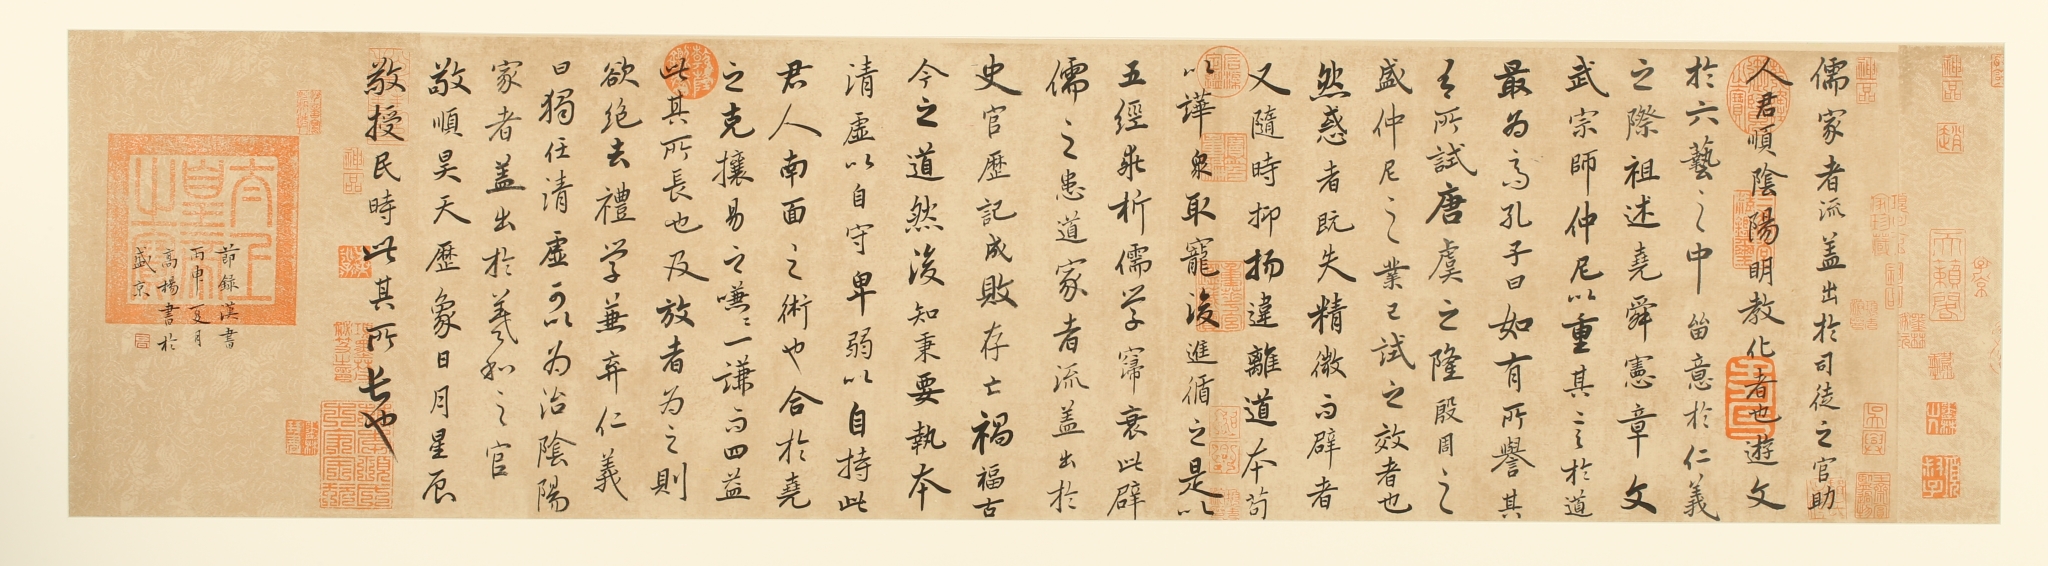 儒家者流盖出於司徒之官助
人君順陰陽明教化者也遊文
於六藝之中留意於仁義
之際祖述堯舜憲章文
武宗師仲尼以重其言於道
最为高孔子曰如有所譽其
有所試唐虞之隆殷周之
盛仲尼之業已試之效者也
然惑者既失精微而辟者
又隨時抑扬違離道本苟
以譁衆取寵後進循之是以
五經乖析儒学寖衰此辟
儒之患道家者流盖出於
史官歷記成敗存亡禍福古
今之道然後知秉要執本
清虛以自守卑弱以自持此
君人南面之術也合於堯
之克攘易之嗛嗛一謙而四益
此其所長也及放者为之則
欲绝去禮学兼弃仁義
曰獨任清虛可以为治陰陽
家者盖出於羲和之官
敬順昊天歷象日月星辰
敬授民時此其所长也
節錄漢書
丙申夏月
高楊書於
盛京